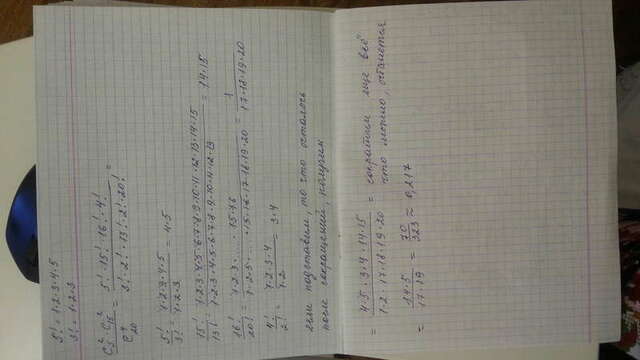 5! = 1·2·3·4·5
3! = 1·2·3
C₅²·C₁₅² / C₂₀⁴ = 5!·15!·16!·4! / 3!·2!·13!·2!·20! =
5! / 3! = 1·2·3·4·5 / 1·2·3 = 4·5
15! / 13! = 1·2·3·4·5·6·7·8·9·10·11·12·13·14·15 / 1·2·3·4·5·6·7·8·9·10·11·12·13 = 14·15
16! / 20! = 1·2·3·...·15·16 / 1·2·3·...·15·16·17·18·19·20 = 1 / 17·18·19·20
4! / 2! = 1·2·3·4 / 1·2 = 3·4
если подставим, то что осталось
после сокращений, получим
= 4·5·3·4·14·15 / 1·2·17·18·19·20 = сократим еще всё
что можно, останется
= 14·5 / 17·19 = 70 / 323 ≈ 0,217